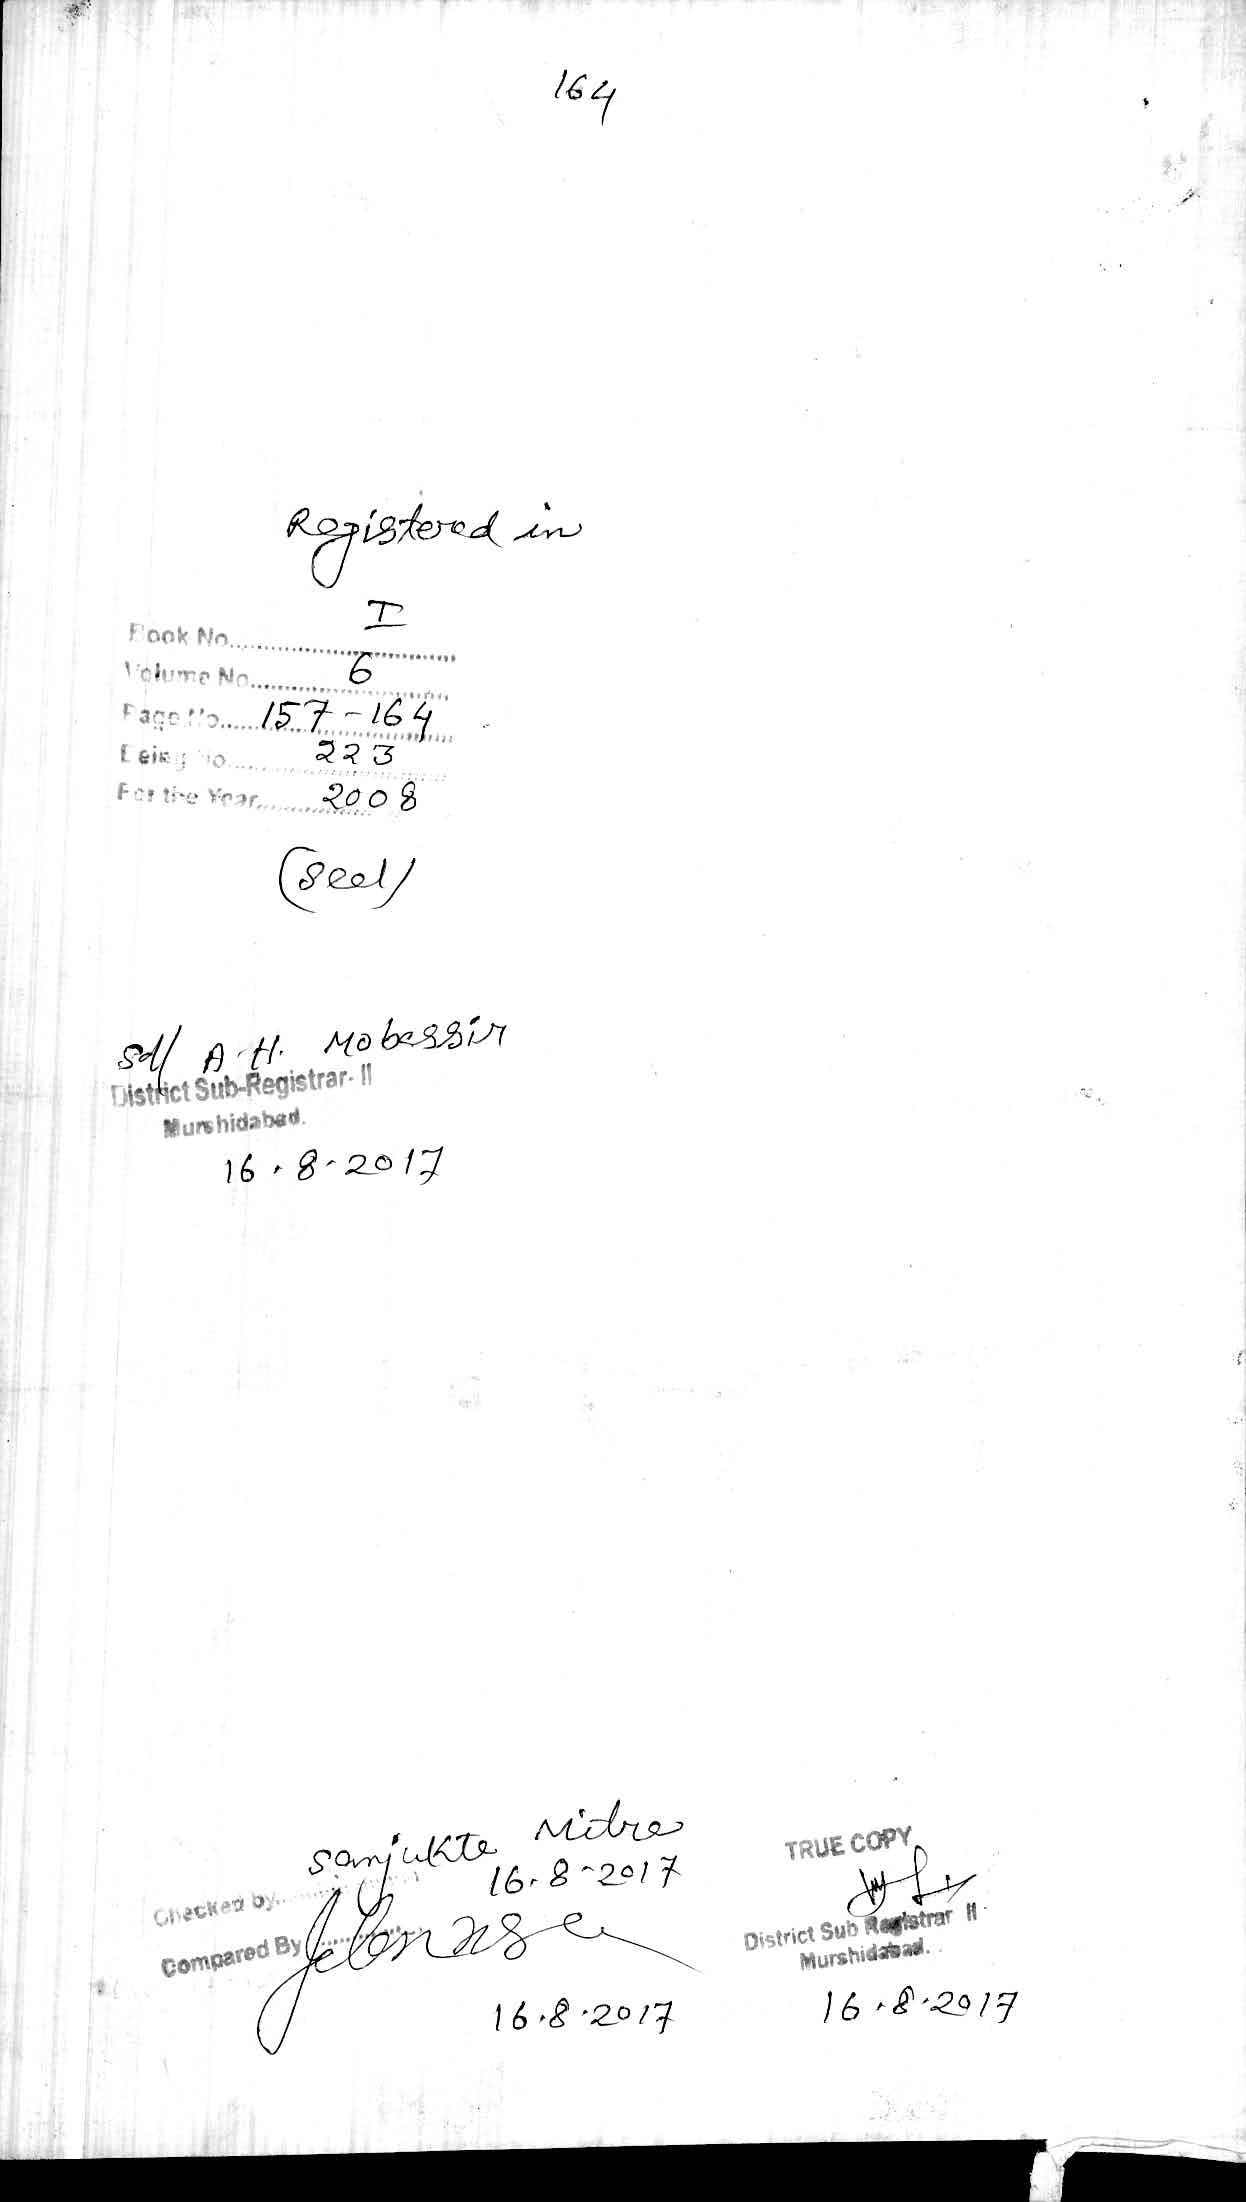 164
Registered in
Book No. I
Volume No. 6
Page No. 157-164
Being No. 223
For the Year. 2008
(Seal)
Sd/ A.H. Mobassir
District Sub-Registrar-II
Murshidabad.
16.8.2017
Sanjukta Mitra
16.8-2017
Checked by
Compared By
16.8.2017
TRUE COPY
District Sub Registrar II
Murshidabad.
16.8.2017